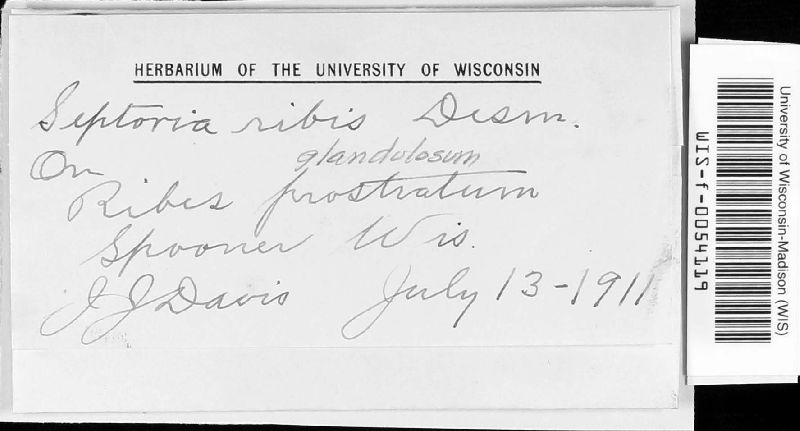 HERBARIUM OF THE UNIVERSITY OF WISCONSIN
Septoria ribis Desm.
On
glandulosum
Ribes prostratum
Spooner Wis.
J J Davis July 13-1911
University of Wisconsin-Madison (WIS)
WIS-f-0054119